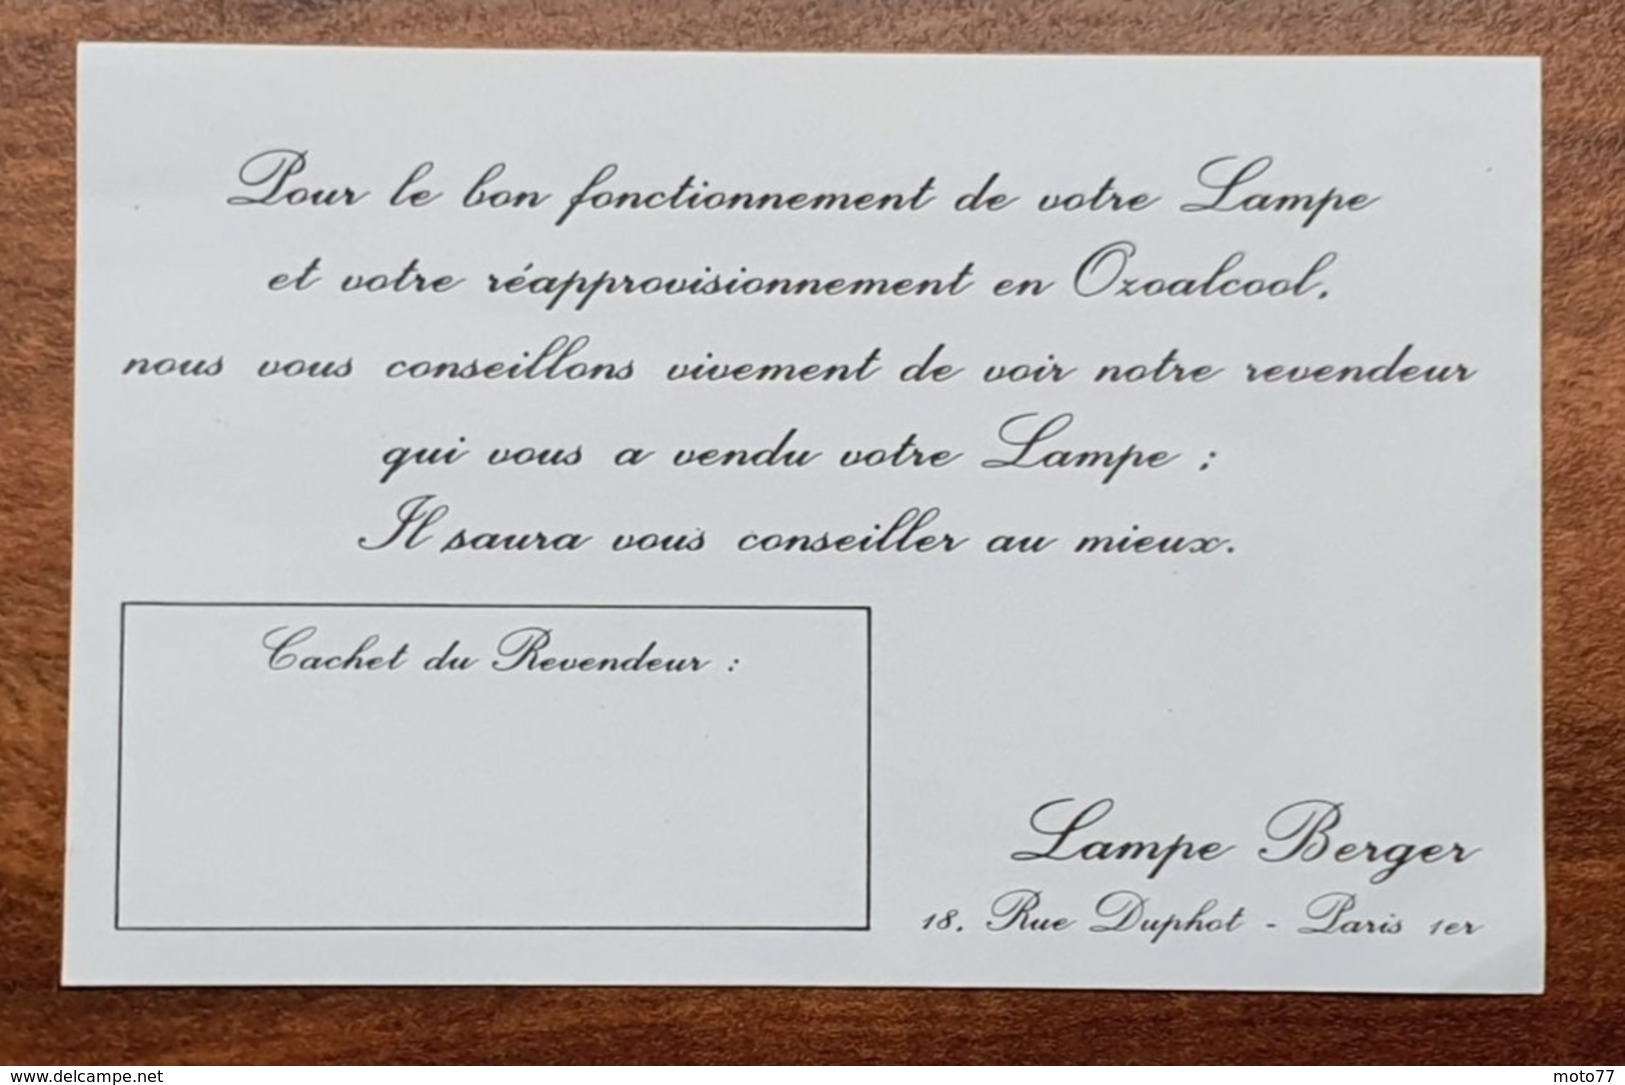 Pour le bon fonctionnement de votre Lampe
et votre réapprovisionnement en Ozoalcool,
nous vous conseillons vivement de voir notre revendeur
qui vous a vendu votre Lampe :
Il saura vous conseiller au mieux.
Cachet du Revendeur :
Lampe Berger
18, Rue Duphot - Paris 1er
www.delcampe.net
moto77